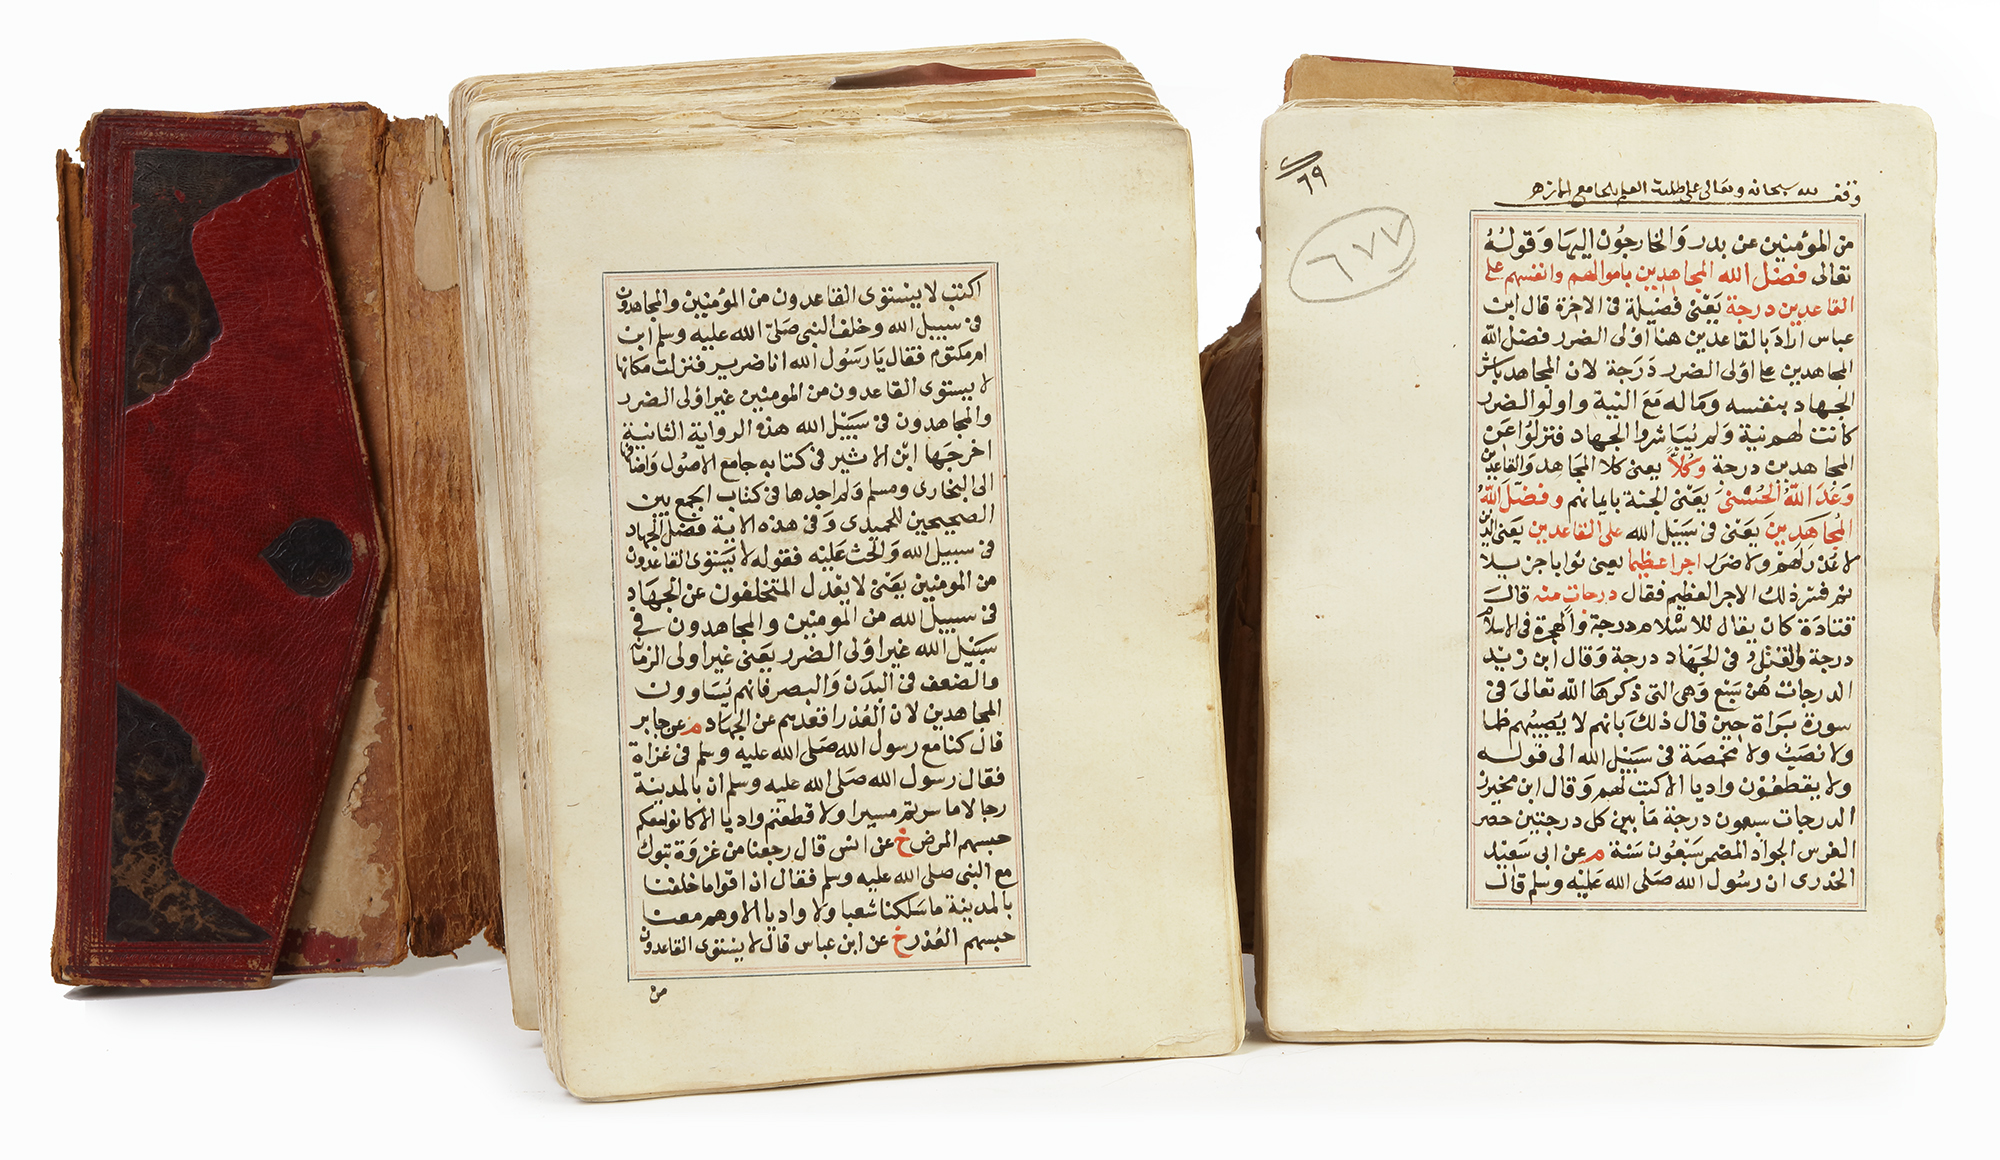 اكتب لا يستوى القاعدون من المؤمنين والمجاهدون
فى سبيل الله وخلف النبى صلى الله عليه وسلم ابن
ام مكتوم فقال يا رسول الله انا ضرير فنزلت مكانها
لا يستوى القاعدون من المومنين غير اولى الضرر
والمجاهدون فى سبيل الله هذه الرواية الثانية
اخرجها ابن الاثير فى كتابه جامع الاصول واضافها
الى البخارى ومسلم ولم اجدها فى كتاب الجمع بين
الصحيحين للحميدى وفى هذه الاية فضل الجهاد
فى سبيل الله والحث عليه فقوله لا يستوى القاعدون
من المومنين يعنى لا يعدل المتخلفون عن الجهاد
فى سبيل الله من المومنين والمجاهدون فى
سبيل الله غير اولى الضرر يعنى غير اولى الزمانة
والضعف فى البدن والبصر فانهم يساوون
المجاهدين لان العذر اقعدهم عن الجهاد م عن جابر
قال كنا مع رسول الله صلى الله عليه وسلم فى غزاة
فقال رسول الله صلى الله عليه وسلم ان بالمدينة
رجالا ما سرتم مسيرا ولا قطعتم واديا الا كانوا معكم
حبسهم المرض خ عن انس قال رجعنا من غزوة تبوك
مع النبى صلى الله عليه وسلم فقال ان اقواما خلفنا
بالمدينة ما سلكنا شعبا ولا واديا الا وهم معنا
حبسهم العذر خ عن ابن عباس قال لا يستوى القاعدون
من
٦٩
٦٧٧
وقف لله سبحانه وتعالى على طلبة العلم بالجامع الازهر
من المؤمنين عن بدر والخارجون اليها وقوله
تعالى فضل الله المجاهدين باموالهم وانفسهم على
القاعدين درجة يعنى فضيلة فى الاخرة قال ابن
عباس اراد بالقاعدين هنا اولى الضرر فضل الله
المجاهدين على اولى الضرر درجة لان المجاهد باشر
الجهاد بنفسه وماله مع النية واولو الضرر
كانت لهم نية ولم يباشروا الجهاد فنزلوا عن
المجاهدين درجة وكلا يعنى كلا المجاهد والقاعدين
وعد الله الحسنى يعنى الجنة بايمانهم وفضل الله
المجاهدين يعنى فى سبيل الله على القاعدين يعنى الذين
لا عذر لهم ولا ضرر اجرا عظيما يعنى ثوابا جزيلا
ثم فسر ذلك الاجر العظيم فقال درجات منه قال
قتادة كان يقال للاسلام درجة والهجرة فى الاسلام
درجة والقتل فى الجهاد درجة وقال ابن زيد
الدرجات هن سبع وهى التى ذكرها الله تعالى فى
سورة براة حين قال ذلك بانهم لا يصيبهم ظما
ولا نصب ولا مخمصة فى سبيل الله الى قوله
ولا يقطعون واديا الا كتب لهم وقال ابن محيريز
الدرجات سبعون درجة ما بين كل درجتين حضر
الفرس الجواد المضمر سبعون سنة م عن ابى سعيد
الخدرى ان رسول الله صلى الله عليه وسلم قال